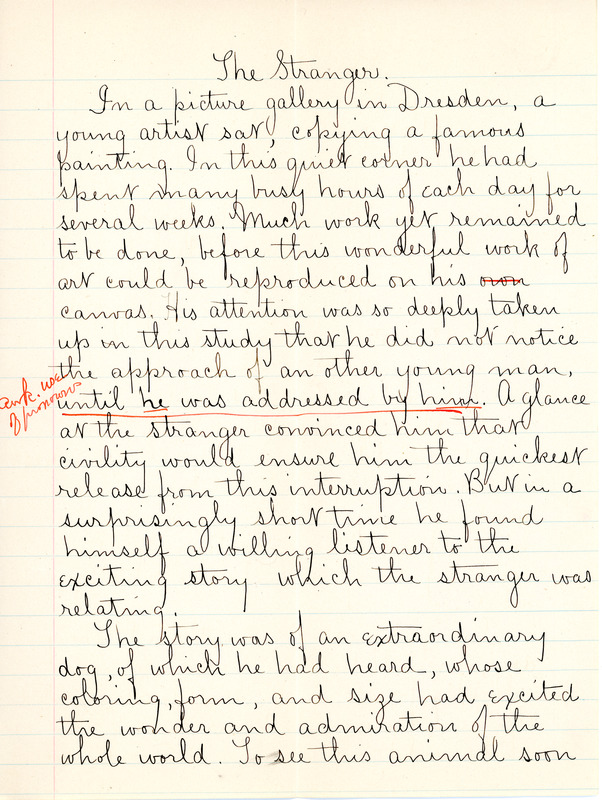 The Stranger.
In a picture gallery in Dresden, a
young artist sat, copying a famous
painting. In this quiet corner he had
spent many busy hours of each day for
several weeks. Much work yet remained
to be done, before this wonderful work of
art could be reproduced on his own
canvas. His attention was so deeply taken
up in this study that he did not notice
the approach of an other young man,
awk. use
of pronouns
until he was addressed by him. A glance
at the stranger convinced him that
civility would ensure him the quickest
release from this interruption. But in a
surprisingly short time he found
himself a willing listener to the
exciting story which the stranger was
relating.
The story was of an extraordinary
dog, of which he had heard, whose
coloring, form, and size had excited
the wonder and admiration of the
whole world. To see this animal soon